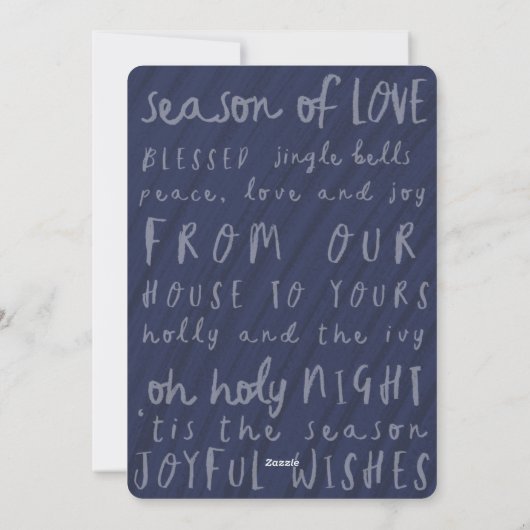 season of LOVE
BLESSED jingle bells
peace, love and joy
FROM OUR
HOUSE TO YOURS
holly and the ivy
oh holy NIGHT
'tis the season
Zazzle
JOYFUL WISHES